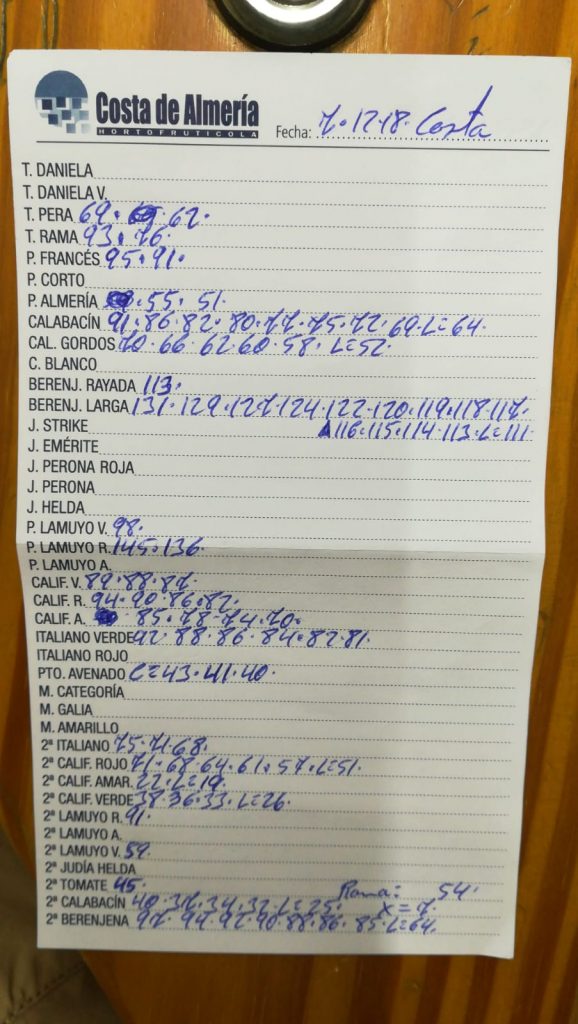 Costa de Almería
HORTOFRUTICOLA
Fecha: 7.12.18. Costa
T. DANIELA
T. DANIELA V.
T. PERA 69. 62.
T. RAMA 93. 76.
P. FRANCÉS 95. 91.
P. CORTO
P. ALMERÍA 55. 51.
CALABACÍN 91. 86. 82. 80. 77. 75. 72. 69. L=64.
CAL. GORDOS 70. 66. 62. 60. 58. L=52
C. BLANCO
BERENJ. RAYADA 113.
BERENJ. LARGA 131. 129. 127. 124. 122. 120. 119. 118. 117.
J. STRIKE 116. 115. 114. 113. L=111
J. EMÉRITE
J. PERONA ROJA
J. PERONA
J. HELDA
P. LAMUYO V. 98.
P. LAMUYO R. 145. 136.
P. LAMUYO A.
CALIF. V. 89. 88. 87.
CALIF. R. 94. 90. 86. 82.
CALIF. A. 85. 78. 74. 70.
ITALIANO VERDE 92. 88. 86. 84. 82. 81.
ITALIANO ROJO
PTO. AVENADO L=43. 41. 40.
M. CATEGORÍA
M. GALIA
M. AMARILLO
2ª ITALIANO 75. 71. 68.
2ª CALIF. ROJO 71. 68. 64. 61. 57. L=51.
2ª CALIF. AMAR. 22. L=19.
2ª CALIF. VERDE 38. 36. 33. L=26.
2ª LAMUYO R. 91.
2ª LAMUYO A.
2ª LAMUYO V. 59.
2ª JUDÍA HELDA
2ª TOMATE 45. Rama: 54.
2ª CALABACÍN 40. 37. 34. 32. L=25. X=7.
2ª BERENJENA 97. 94. 92. 90. 88. 86. 85. L=64.